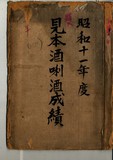 昭和十一年度
見本酒唎酒成績